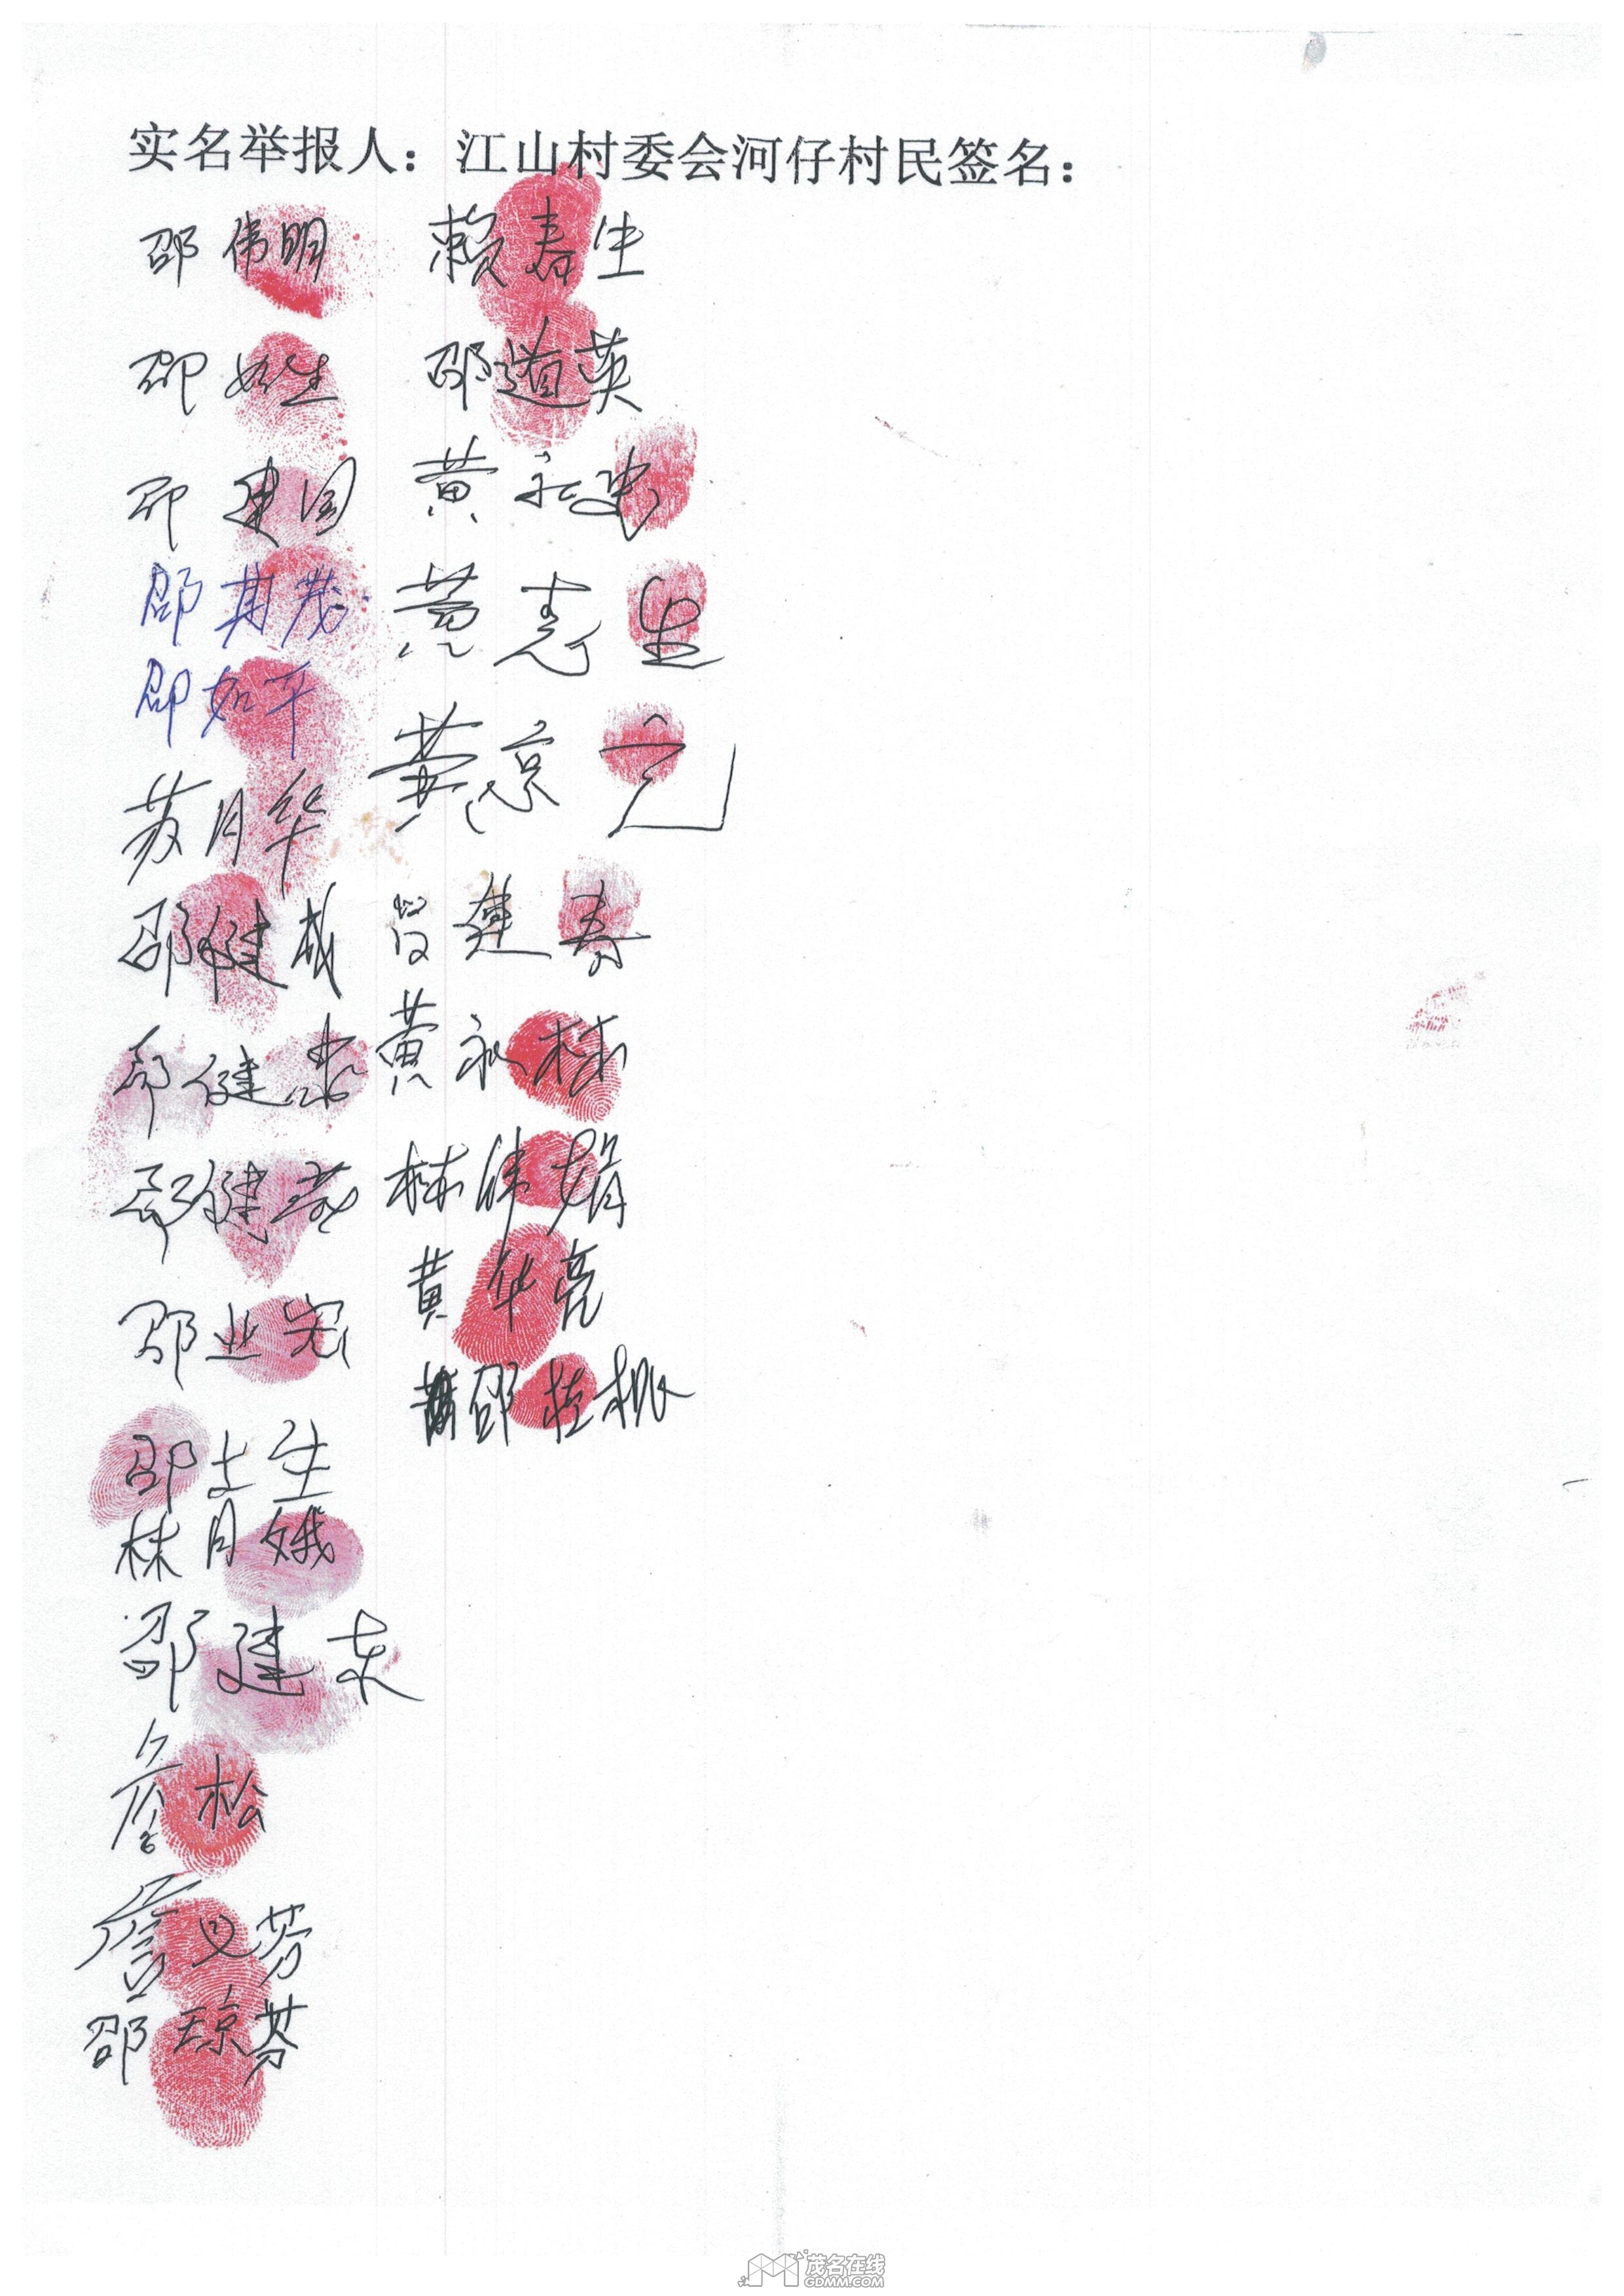 实名举报人：江山村委会河仔村民签名：
邵伟明 赖春生
邵 生 邵道英
邵建国 黄
邵其茂 黄志生
邵如平 黄琼元
苏月华 建寿
邵健成 黄永林
邵健忠 林伟娟
邵健茂 黄华亮
邵业宏 邵桂枫
邵土生
林月娥
邵建东
詹松
詹 芬
邵琼芬
茂名在线
GDMM.COM